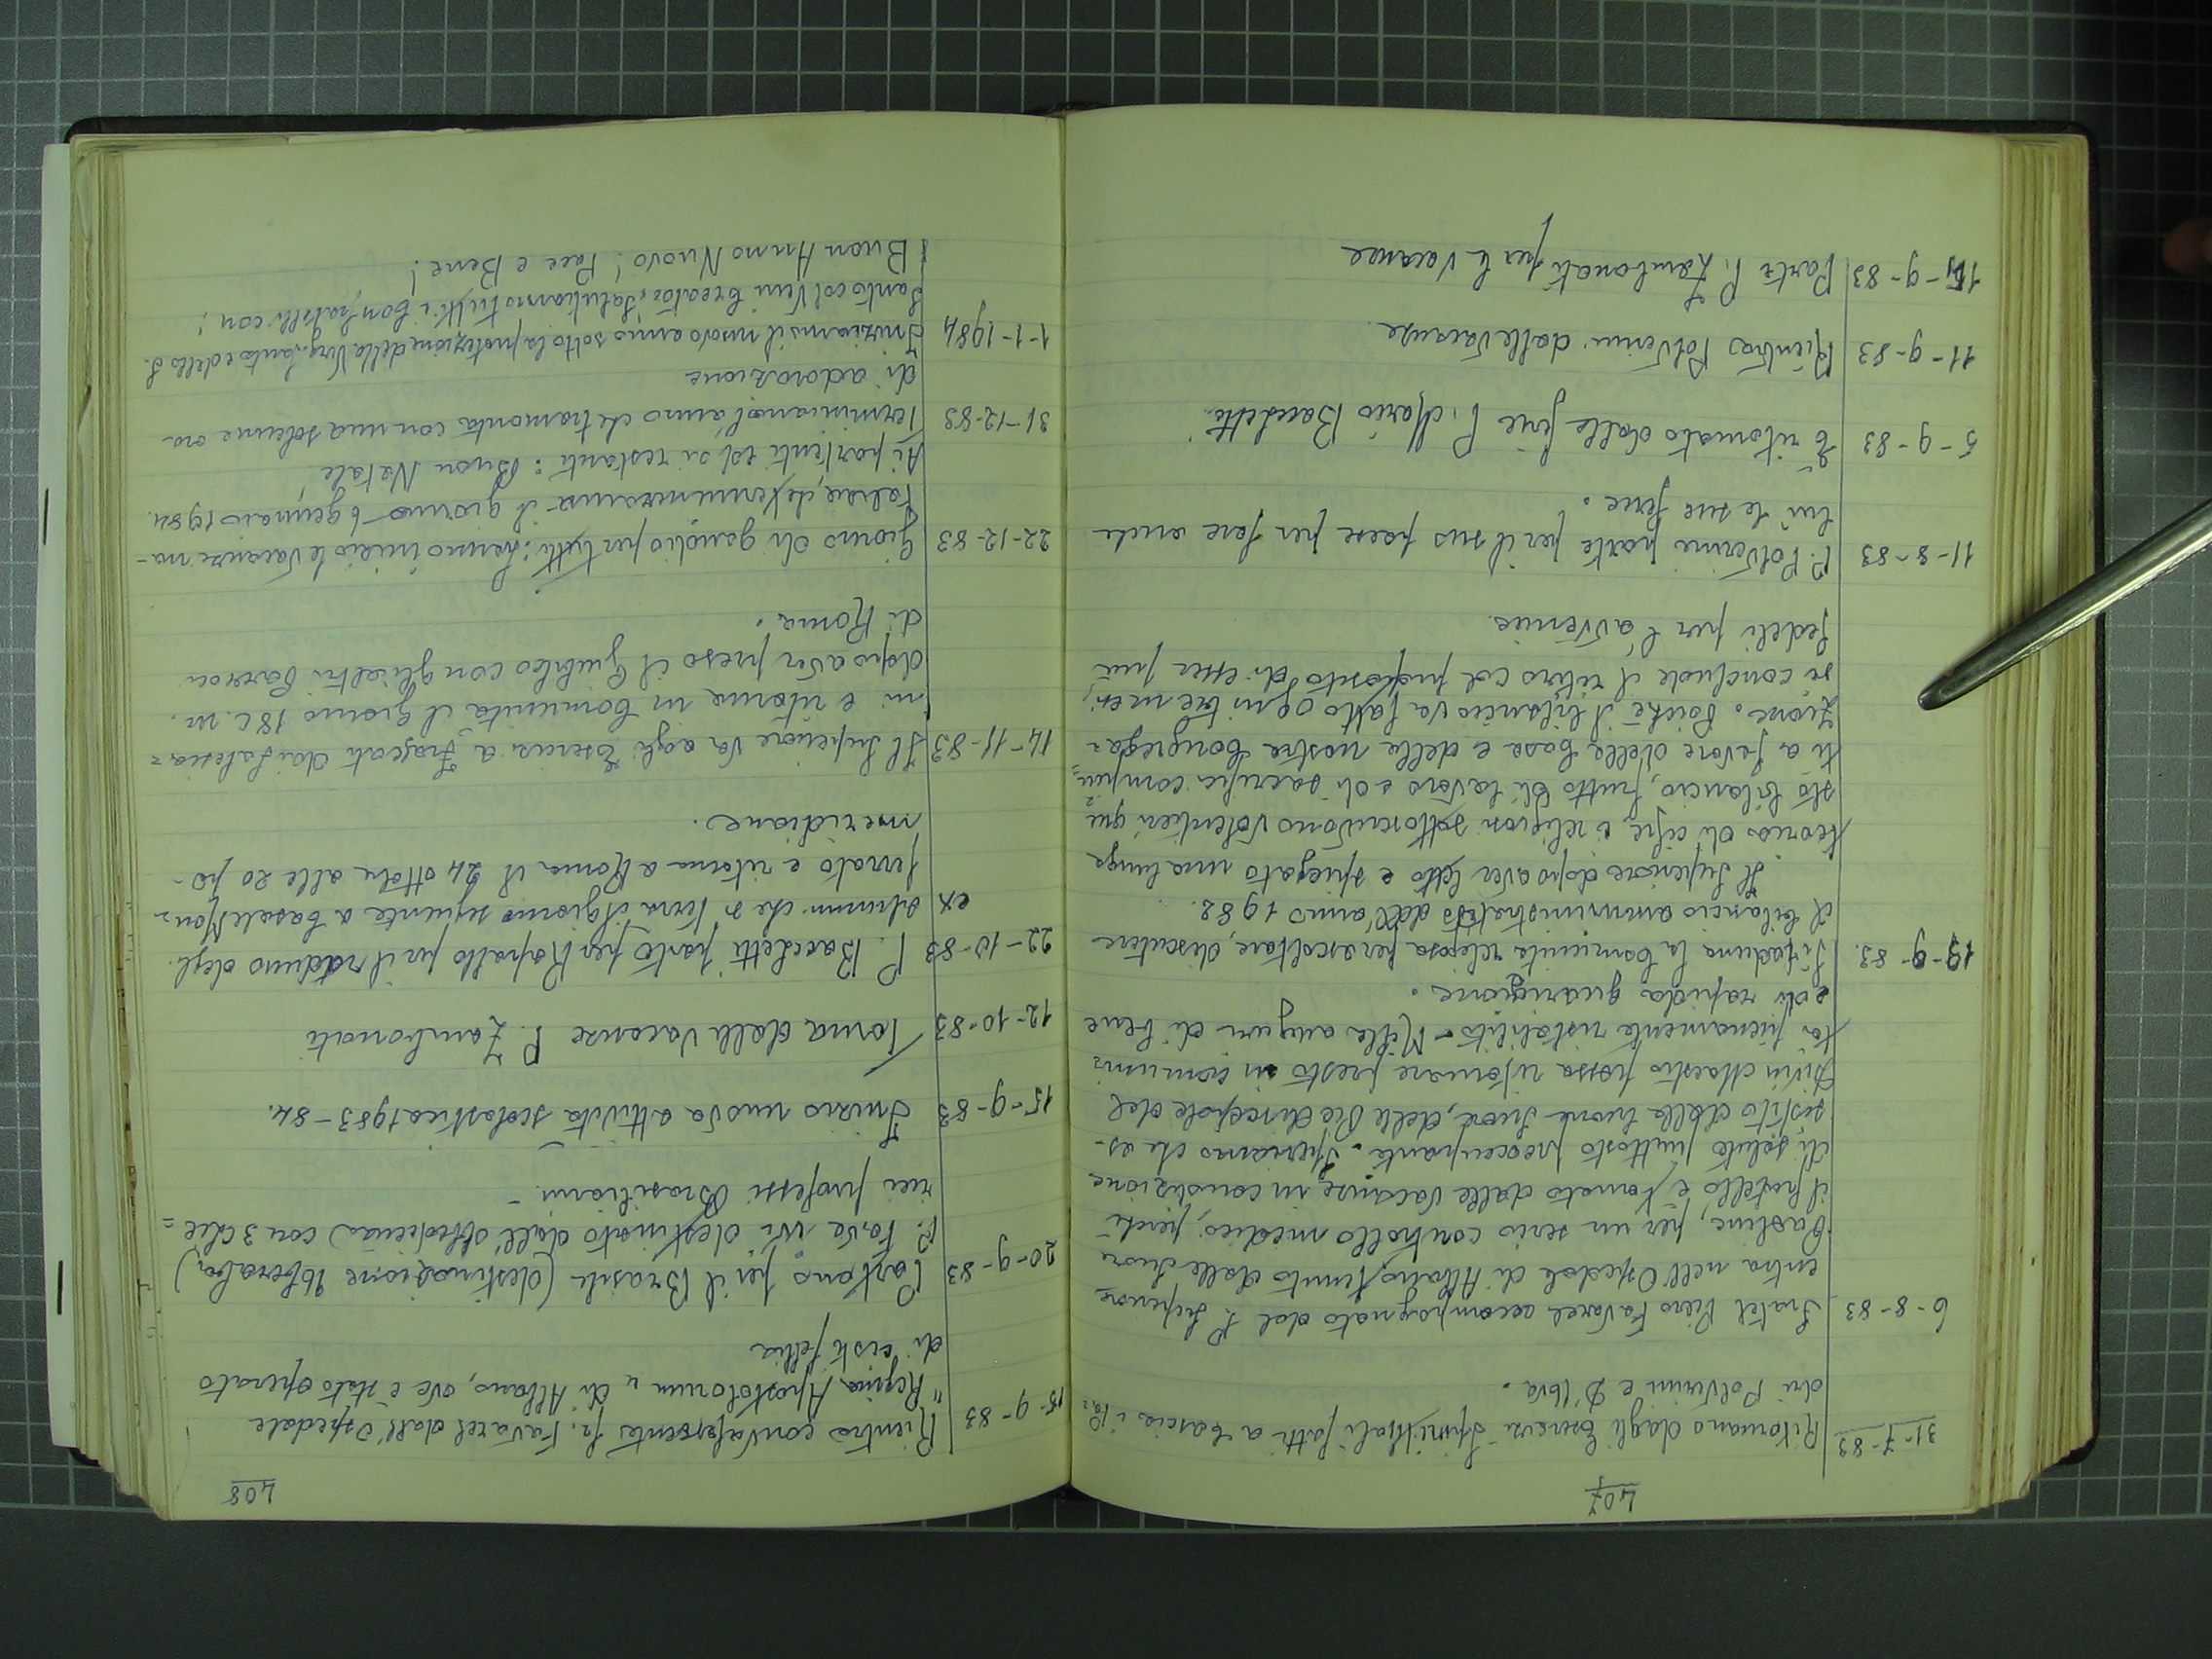 407
31-7-83 Ritornano dagli Esercizi Spirituali fatti a Cascia i Pa=
dri Polverini e D'Uva.
6-8-83 Fratel Piero Favarel accompagnato dal P. Superiore
entra nell'Ospedale di Albano, tenuto dalle Suore
Paoline, per un serio controllo medico, perché
il fratello è tornato dalle vacanze in condizione
di salute piuttosto preoccupante. Speriamo che as-
sistito dalle buone Suore, delle Pie discepole del
Divin Maestro possa ritornare presto in comuni=
tà pienamente ristabilito - Mille auguri di bene
e di rapida guarigione.
19-9-83. Si raduna la Comunità religiosa per ascoltare, discutere
il bilancio amministrativo dell'anno 1982.
Il Superiore dopo aver letto e spiegato una lunga
teoria di cifre i religiosi sottoscrivono volentieri que=
sto bilancio, frutto di lavoro e di sacrifici compiu=
ti a favore della Casa e della nostra Congrega=
zione. Poiché il bilancio va fatto ogni tre mesi,
si conclude il ritiro col proposito di esser più
fedeli per l'avvenire.
11-8-83 P. Polverini parte per il suo paese per fare anche
lui le sue ferie.
5-9-83 È ritornato dalle ferie P. Mario Bacchetti.
11-9-83 Rientra Polverini dalle vacanze.
15-9-83 Parte P. Zambonati per le vacanze
408
15-9-83 Rientra convalescente fr. Favarel dall'Ospedale
"Regina Apostolorum" di Albano, ove è stato operato
di cisti fellia
20-9-83 Partono per il Brasile (destinazione Uberaba)
P. Fava ivi destinato dall'obbedienza con 3 chie=
rici professi Brasiliani.-
15-9-83 Inizio nuova attività scolastica 1983-84.
12-10-83 Torna dalle vacanze P. Zambonati
22-10-83 P. Bacchetti parte per Rapallo per il raduno degli
ex alunni che si terrà il giorno seguente a Casale Mon=
ferrato e ritorna a Roma il 24 ottobre alle 20 po-
meridiane.
14-11-83 Il Superiore va agli Esercizi a Frascati dai Salesia=
ni e ritorna in Comunità il giorno 18 c.m.
dopo aver preso il Giubileo con gli altri Parroci
di Roma.
22-12-83 Giorno di gaudio per tutti: hanno inizio le vacanze na-
talizie, che termineranno il giorno 6 gennaio 1984.
Ai partenti ed ai restanti: Buon Natale!
31-12-83 Terminiamo l'anno che tramonta con una solenne ora
di adorazione
1-1-1984 Iniziamo il nuovo anno sotto la protezione della Verg. Santa e dello S.
Santo col Veni Creator; salutiamo tutti i Confratelli con:
Buon Anno Nuovo! Pace e Bene!